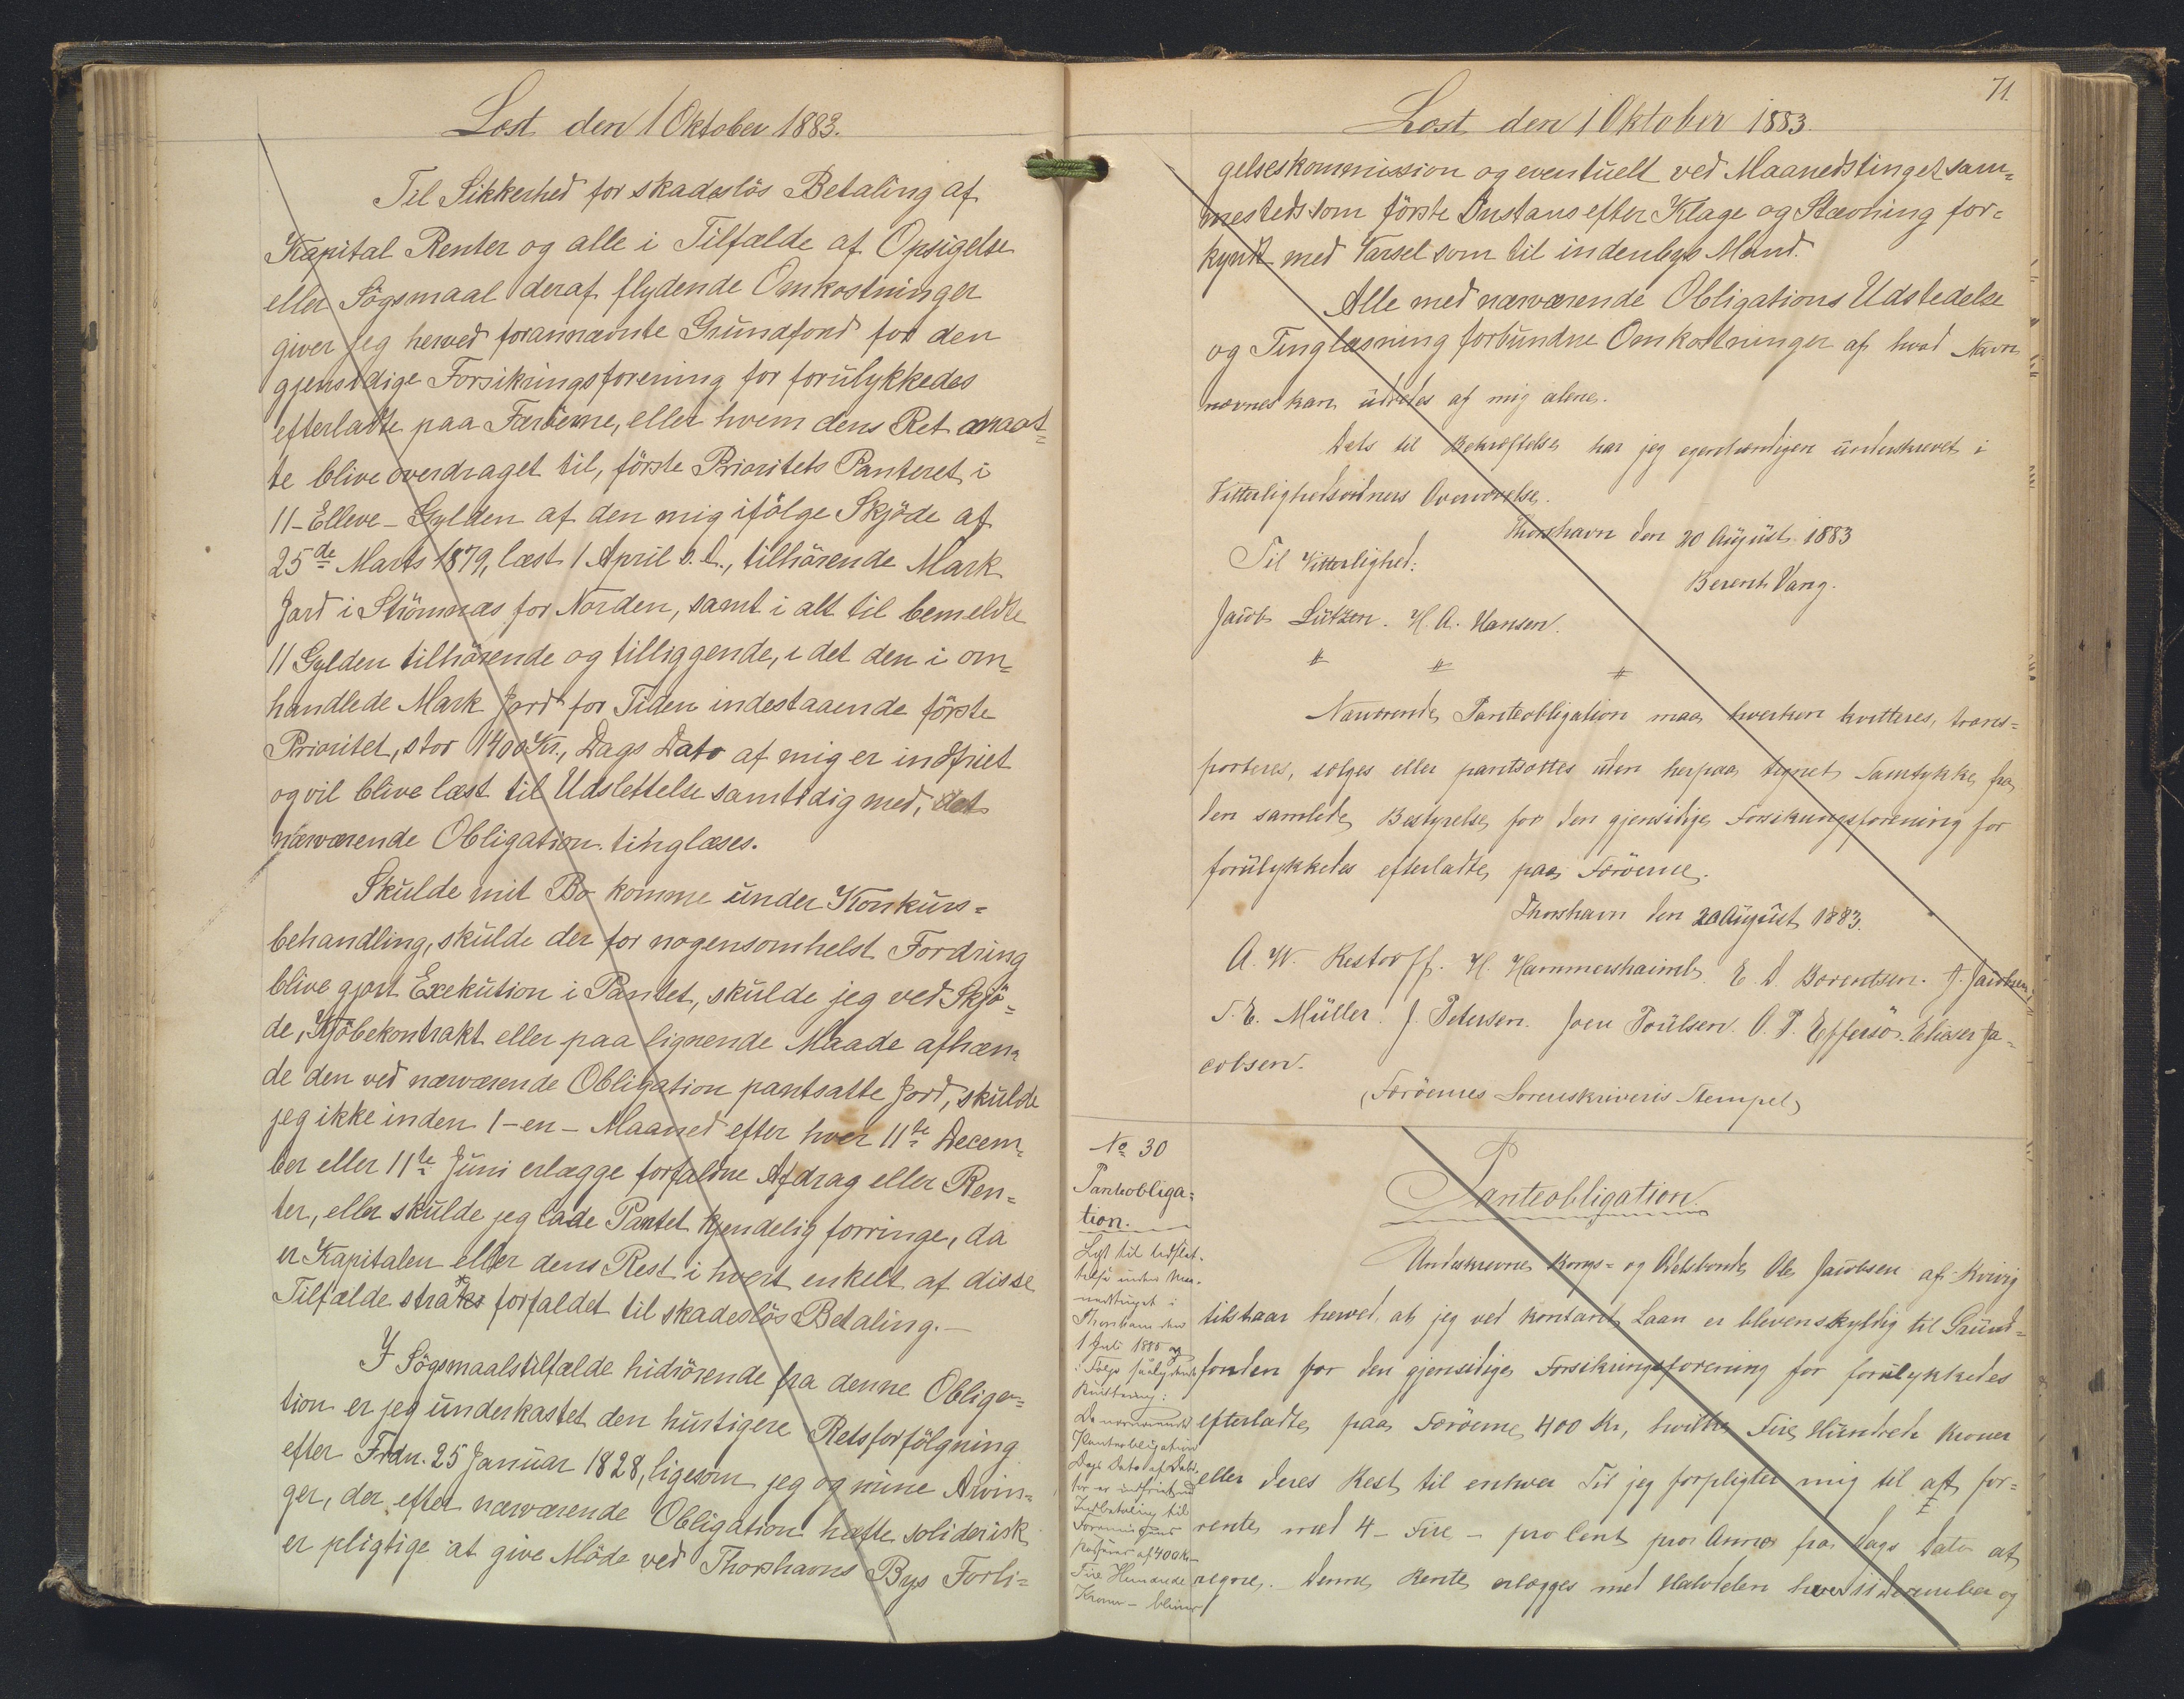 Læst den 1 Oktober 1883.
Til Sikkerhed for skadeslös Betaling af
Kapital Renter og alle i Tilfælde af Opsigelse
eller Sögsmaal deraf flydende Omkostninger
giver jeg herved forannævnte Grundfond for den
gjensidige Forsikringsforening for forulykkedes
efterladte paa Færöerne, eller hvem dens Ret maat=
te blive overdraget til, förste Prioritets Panteret i
11 - Elleve - Gylden af den mig ifölge Skjöde af
25de Marts 1879, læst 1 April s. A., tilhörende Mark
Jord i Strömnæs for Norden, samt i alt til bemeldte
11 Gylden tilhörende og tilliggende, i det den i om=
handlede Mark Jord for Tiden indestaaende förste
Prioritet, stor 1400 Kr., Dags Dato af mig er indfriet
og vil blive læst til Udslettelse samtidig med, det
nærværende Obligation tinglæses.
Skulde mit Bo komme under Konkurs=
behandling, skulde der for nogensomhelst Fordring
blive gjort Exekution i Pantet, skulde jeg ved Skjö=
de, Kjöbekontrakt eller paa lignende Maade afhæn=
de den ved nærværende Obligation pantsatte Jord, skulde
jeg ikke inden 1 - en - Maaned efter hver 11te Decem=
ber eller 11te Juni erlægge forfaldne Afdrag eller Ren=
ter, eller skulde jeg lade Pantet kjendelig forringe, da
er Kapitalen eller dens Rest i hvert enkelt af disse
Tilfælde straks forfaldet til skadeslös Betaling. -
I Sögsmaalstilfælde hidrörende fra denne Obliga=
tion er jeg underkastet den hurtigere Retsforfölgning
efter Frdn. 25 Januar 1828, ligesom jeg og mine Arvin=
ger, der efter nærværende Obligation hæfte soliderisk
er pligtige at give Möde ved Thorshavns Bys Forli=
71.
Læst den 1 Oktober 1883.
gelseskommission og eventuelt ved Maanedstinget sam=
mesteds som förste Instans efter Klage og Stævning for=
kyndt med Varsel som til indenbys Mand.
Alle med nærværende Obligations Udstedelse
og Tinglæsning forbundne Omkostninger af hvad Navn
nævnes kan udredes af mig alene.
Dets til Bekræftelse har jeg egenhændigen underskrevet i
Vitterlighedsvidners Overværelse.
Thorshavn den 20 August 1883
Til Vitterlighed:
Berent Vang.
Jacob Lützen. H. A. Hansen.
Nærværende Panteobligation maa hverken kvitteres, trans=
porteres, sælges eller pantsættes uden herpaa tegnet Samtykke fra
den samlede Bestyrelse for den gjensidige Forsikringsforening for
forulykkedes efterladte paa Færöerne.
Thorshavn den 20 August 1883.
A. W. Restorff. H. Hammershaimb. E. A. Berentsen. J. Jacobsen.
S. E. Müller. J. Petersen. Joen Poulsen. O. P. Effersö. Elieser Ja=
cobsen.
(Færöernes Sorenskriveris Stempel)
No 30
Panteobliga=
tion.
Lyst til Udslet-
telse inden Maa-
nedstinget i
Thorshavn den
1 Juli 1885 og
i Fölge saalydende
Kvittering:
Da nærværende
Panteobligation
Dags Dato af Debi-
tor er indfriet ved
Indbetaling til
Foreningens
Kasserer af 400 Kr -
Fire Hundrede
Kroner - bliver
Panteobligation.
Underskrevne Kongs= og Odelsbonde Ole Jacobsen af Kvivig
tilstaar herved, at jeg ved kontant Laan er bleven skyldig til Grund=
fonden for den gjensidige Forsikringsforening for forulykkedes
efterladte paa Færöerne 400 Kr, hvilke Fire Hundrede Kroner
eller deres Rest til enhver Tid jeg forpligter mig til at for=
rente med 4 - Fire - pro Cent pro Anno fra Dags Dato at
regne. Denne Rente erlægges med Halvdelen hver 11 December og